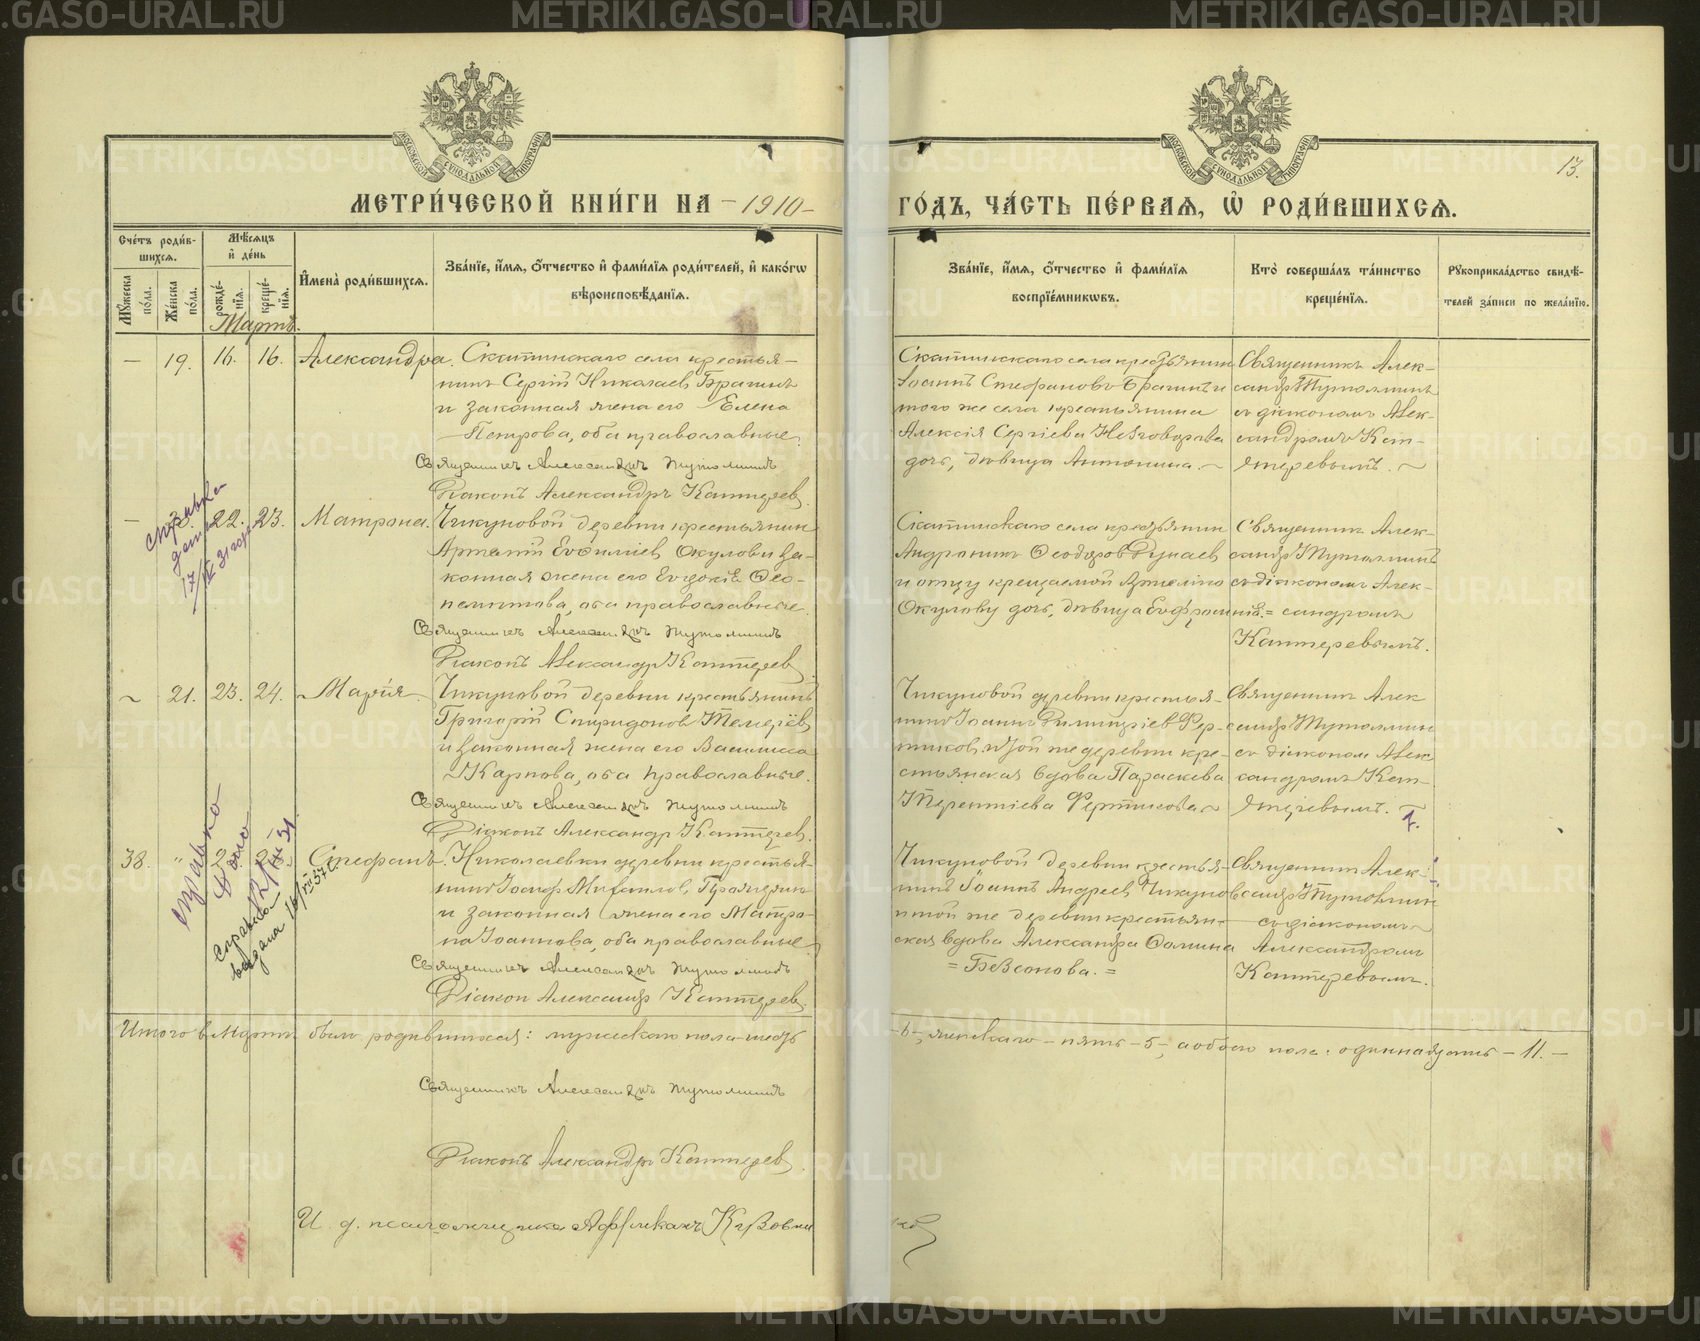 МЕТРИ́ЧЕСКОЙ КНИ́ГИ НА -1910-
ГО́ДЪ, ЧА́СТЬ ПЕ́РВАѦ, Ѡ҆ РОДИ́ВШИХСѦ.
13.
МОСКОВСКОЙ СѴНОДАЛЬНОЙ ТИПОГРАФІИ
МОСКОВСКОЙ СѴНОДАЛЬНОЙ ТИПОГРАФІИ
Сче́тъ роди́вшихсѧ.
Мꙋ́жеска по́ла.
Же́нска по́ла.
Мѣ́сѧцъ и҆ де́нь
рожде́нїѧ.
креще́нїѧ.
И҆мена̀ роди́вшихсѧ.
Зва́нїе, и҆́мѧ, ѻ҆́тчество и҆ фами́лїѧ роди́телей, и҆ како́гѡ
вѣроисповѣ́данїѧ.
Зва́нїе, и҆́мѧ, ѻ҆́тчество и҆ фами́лїѧ
воспрїе́мникѡвъ.
Кто̀ соверша́лъ та́инство
креще́нїѧ.
Рꙋкоприкла́дство свидѣ́-
телей за́писи по жела́нїю.
Мартъ.
— 19. 16. 16. Александра. Скатинскаго села крестья-
нинъ Сергій Николаев Брагинъ
и законная жена его Елена
Петрова, оба православные.
Священникъ Александръ Тутолминъ
Діаконъ Александръ Каттерев.
Скатинскаго села крестьянин
Іоаннъ Стефановъ Брагинъ и
того же села крестьянина
Алексія Сергіева Незговорова
дочь, дѣвица Антонина.
Священникъ Алек-
сандръ Тутолминъ
съ діакономъ Алек-
сандромъ Кат-
теревымъ.
— 22. 23. Матрона. Чикуновой деревни крестьянин
Артемій Евѳиміев Окулов и за-
конная жена его Евдокія Ѳео-
пемптова, оба православные.
Священникъ Александръ Тутолминъ
Діаконъ Александръ Каттерев
Скатинскаго села крестьянин
Андроникъ Ѳеодоров Дунаев
и отцу крещаемой Артемію
Окулову дочь, дѣвица Евфросинія.
Священникъ Алек-
сандръ Тутолминъ
съ діакономъ Алек-
сандромъ
Каттеревымъ.
справка
17/IV 31 года
21. 23. 24. Марія Чикуновой деревни крестьянинъ
Григорій Спиридонов
и законная жена его Василисса
Карпова, оба православные.
Священникъ Александръ Тутолминъ
Діаконъ Александръ Каттерев.
Чикуновой деревни крестья-
нинъ Іоаннъ Димитріев Фер-
тиков и той же деревни кре-
стьянская вдова Параскева
Терентіева Фертикова
Священникъ Алек
сандръ Тутолмин
съ діаконом Алек
сандромъ Кат-
теревымъ.
38. Стефанъ. Николаевки деревни крестья-
нинъ Іосиф Михаилов
и законная жена его Матро-
на Іоаннова, оба православные
Священникъ Александръ Тутолминъ
Діакон Александр Каттерев.
Чикуновой деревни крестья-
нинъ Іоаннъ Андреев Чикунов
и той же деревни крестьян-
ская вдова Александра Ѳомина
= Безсонова. =
Священник Алек-
сандръ Тутолмин
съ діакономъ
Александромъ
Каттеревымъ.
Справка
выдана 16/VII 37 г.
Итого в Мартѣ было родившихся: мужескаго пола - шесть
-6-, женскаго - пять -5-, а обоего пола: одиннадцать - 11. -
Священникъ Александръ Тутолминъ
Діаконъ Александръ Каттерев.
И. д. псаломщика
METRIKI.GASO-URAL.RU